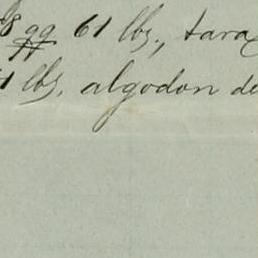 8 qq 61 lbs., tara
1 lbs. algodon de